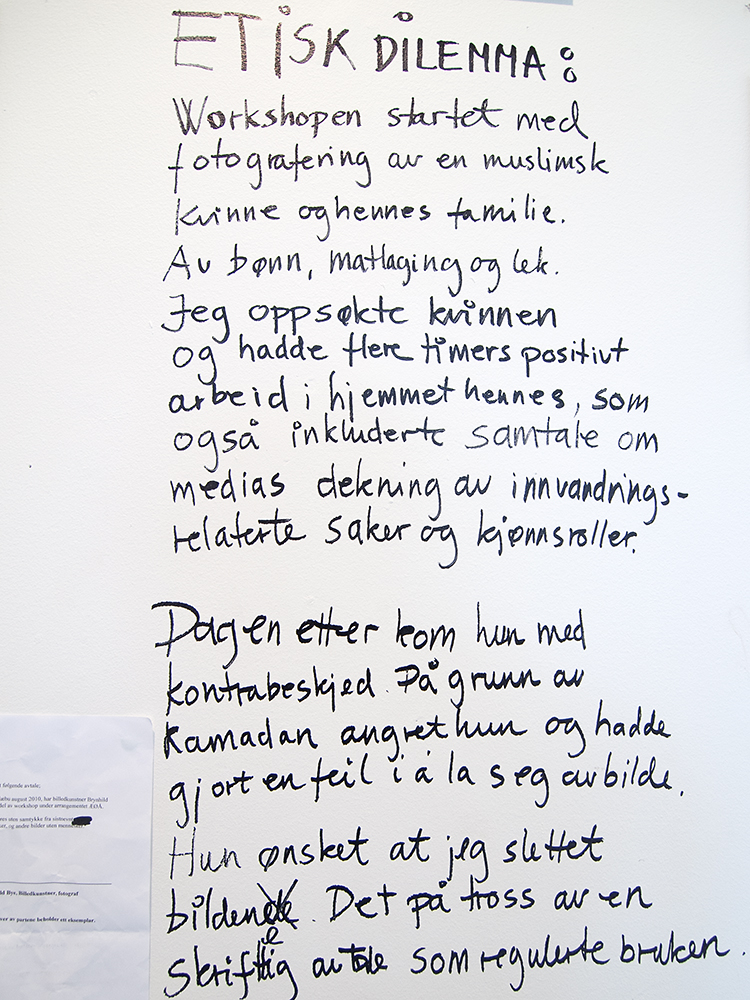 ETISK DILEMMA:
Workshopen startet med
fotografering av en muslimsk
kvinne og hennes familie.
Av bønn, matlaging og lek.
Jeg oppsøkte kvinnen
og hadde flere timers positivt
arbeid i hjemmet hennes, som
også inkluderte samtale om
medias dekning av innvandrings-
relaterte saker og kjønnsroller.
Dagen etter kom hun med
kontrabeskjed. På grunn av
Ramadan angret hun og hadde
gjort en feil i å la seg avbilde.
Hun ønsket at jeg slettet
bildene. Det på tross av en
skriftlig avtale som regulerte bruken.
t følgende avtale;
august 2010, har billedkunstner Brynhild
del av workshop under arrangementet ÆØÅ.
uten samtykke fra
og andre bilder uten
ld Bye, Billedkunstner, fotograf
ver av partene beholder ett eksemplar.